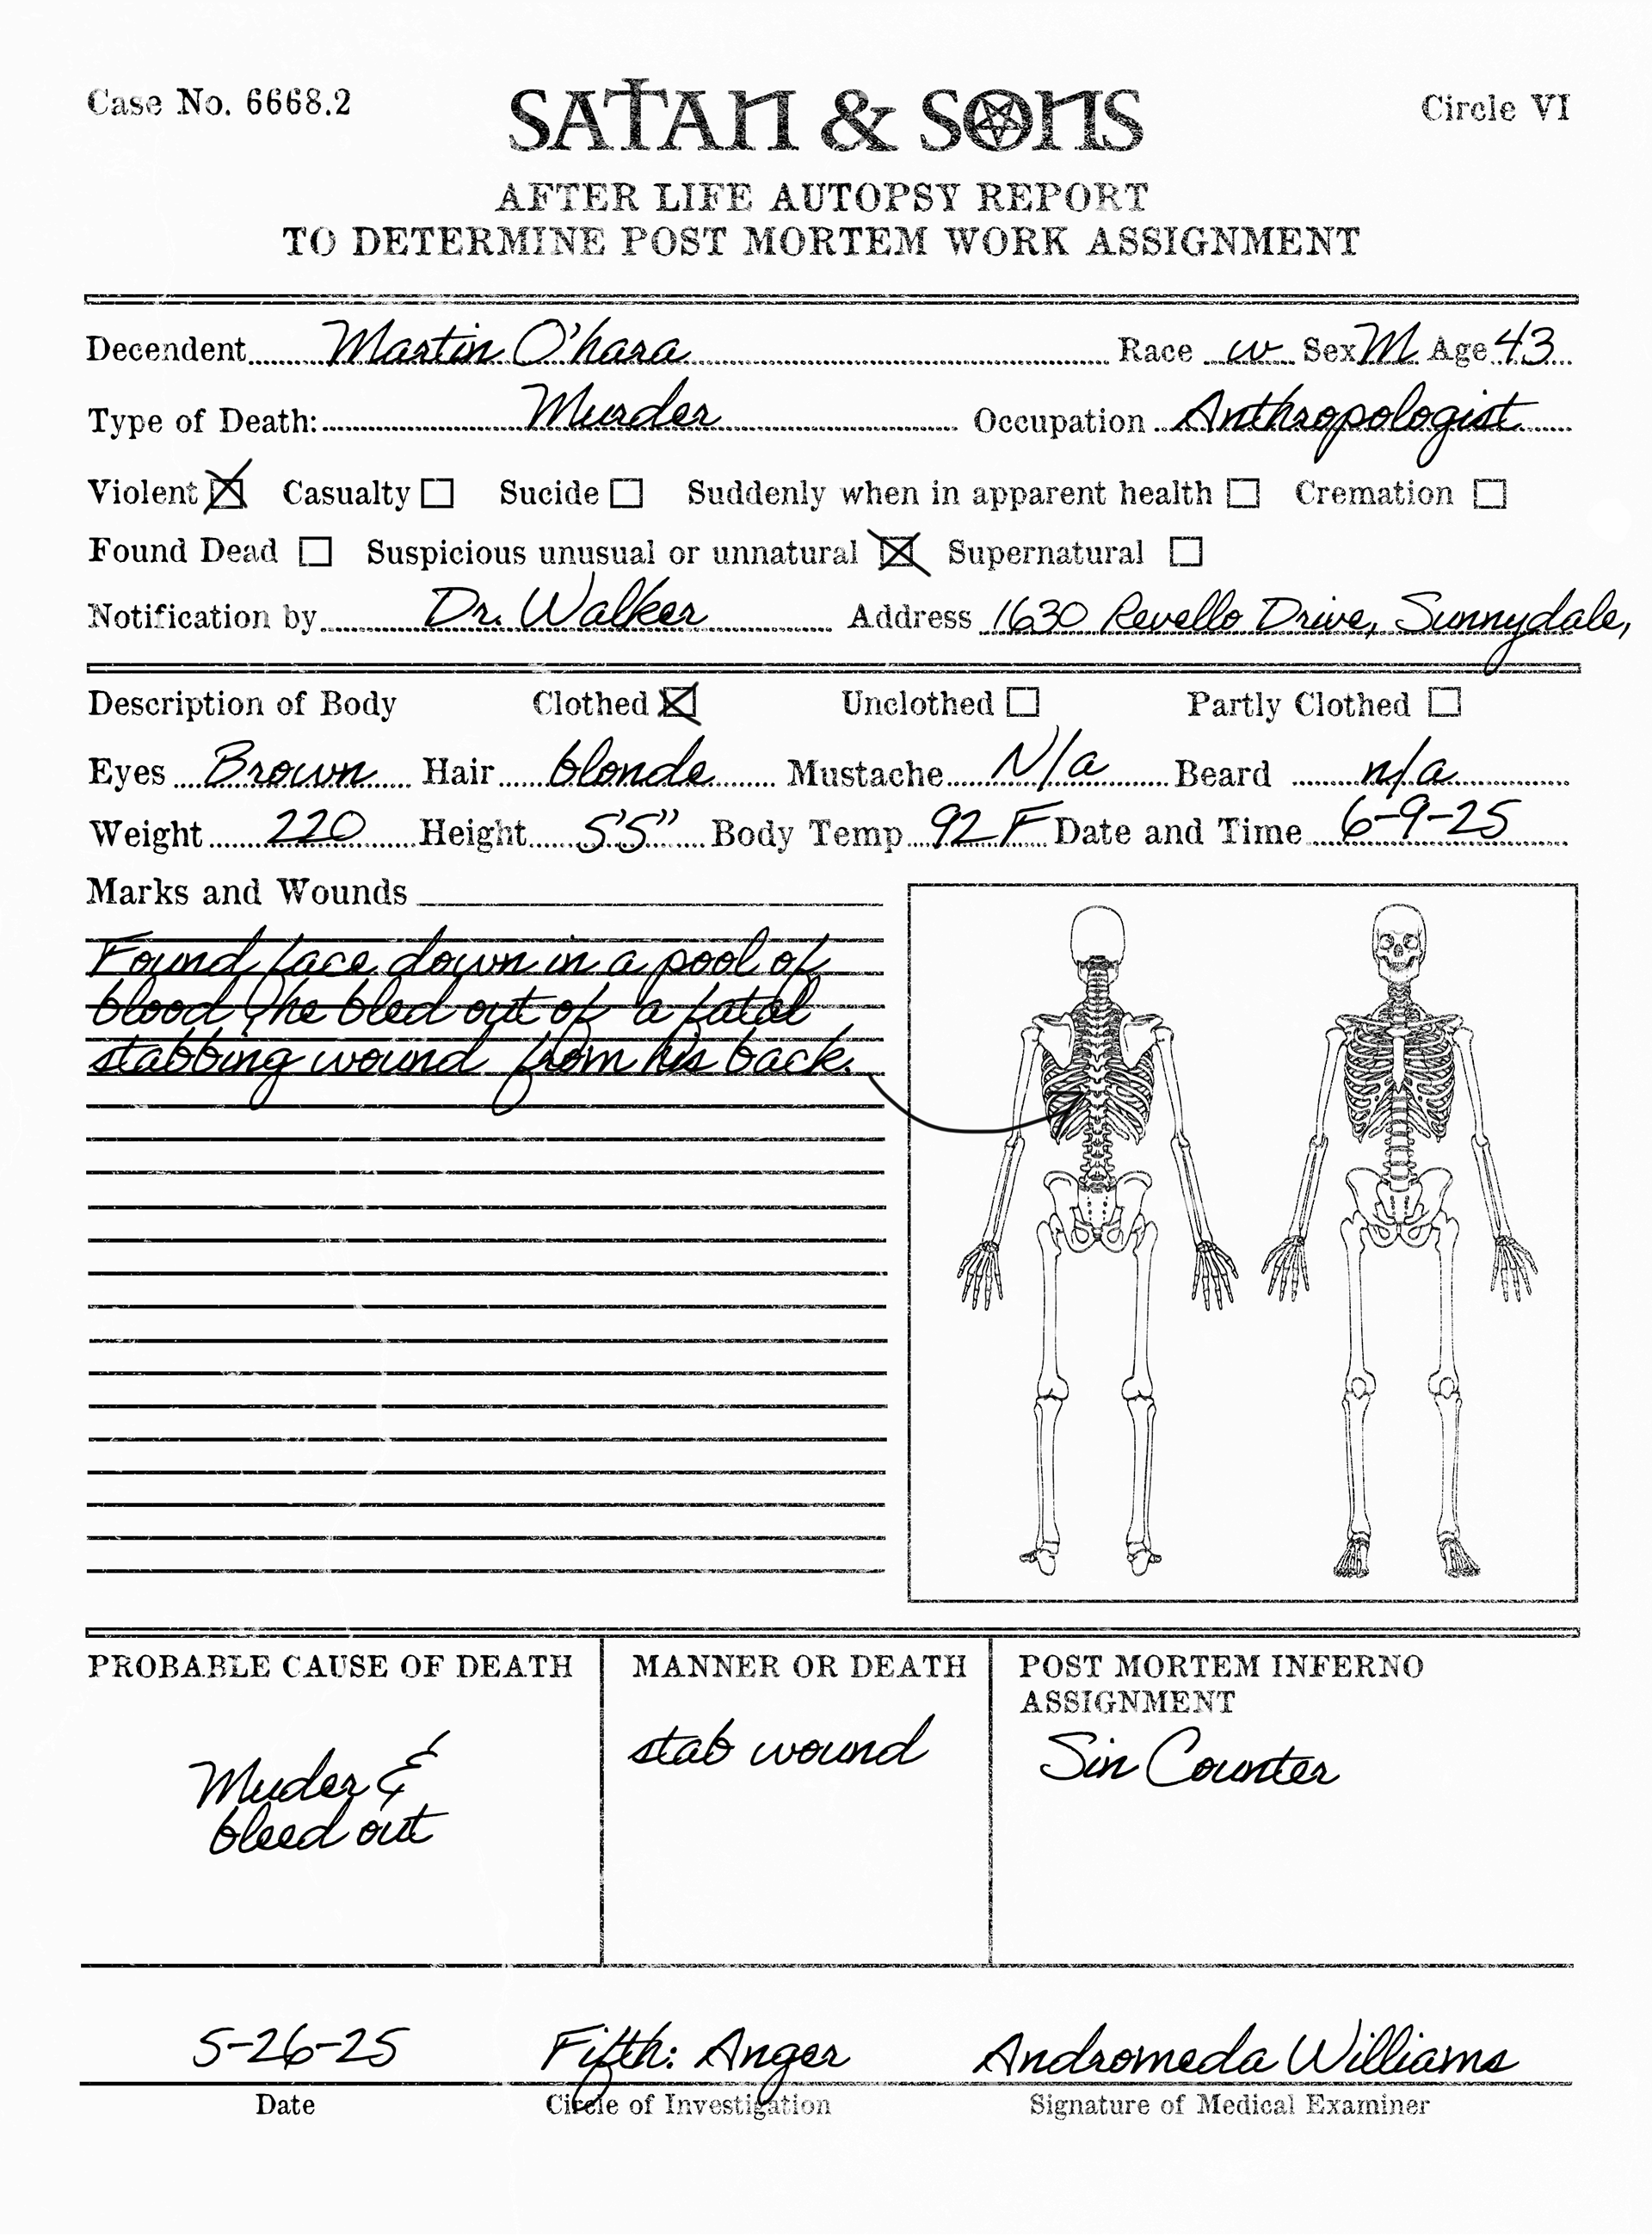 Case No. 6668.2 SATAN & SONS Circle VI
AFTER LIFE AUTOPSY REPORT
TO DETERMINE POST MORTEM WORK ASSIGNMENT
Decendent Martin O'hara Race w Sex M Age 43
Type of Death: Murder Occupation Anthropologist
Violent Casualty Sucide Suddenly when in apparent health Cremation
Found Dead Suspicious unusual or unnatural Supernatural
Notification by Dr. Walker Address 1630 Revello Drive, Sunnydale,
Description of Body Clothed Unclothed Partly Clothed
Eyes Brown Hair blonde Mustache N/a Beard n/a
Weight 220 Height 5'5" Body Temp 92 F Date and Time 6-9-25
Marks and Wounds
Found face down in a pool of
blood, he bled out of a fatal
stabbing wound from his back.
PROBABLE CAUSE OF DEATH
Muder &
bleed out
MANNER OR DEATH
stab wound
POST MORTEM INFERNO
ASSIGNMENT
Sin Counter
5-26-25 Fifth: Anger Andromeda Williams
Date Circle of Investigation Signature of Medical Examiner